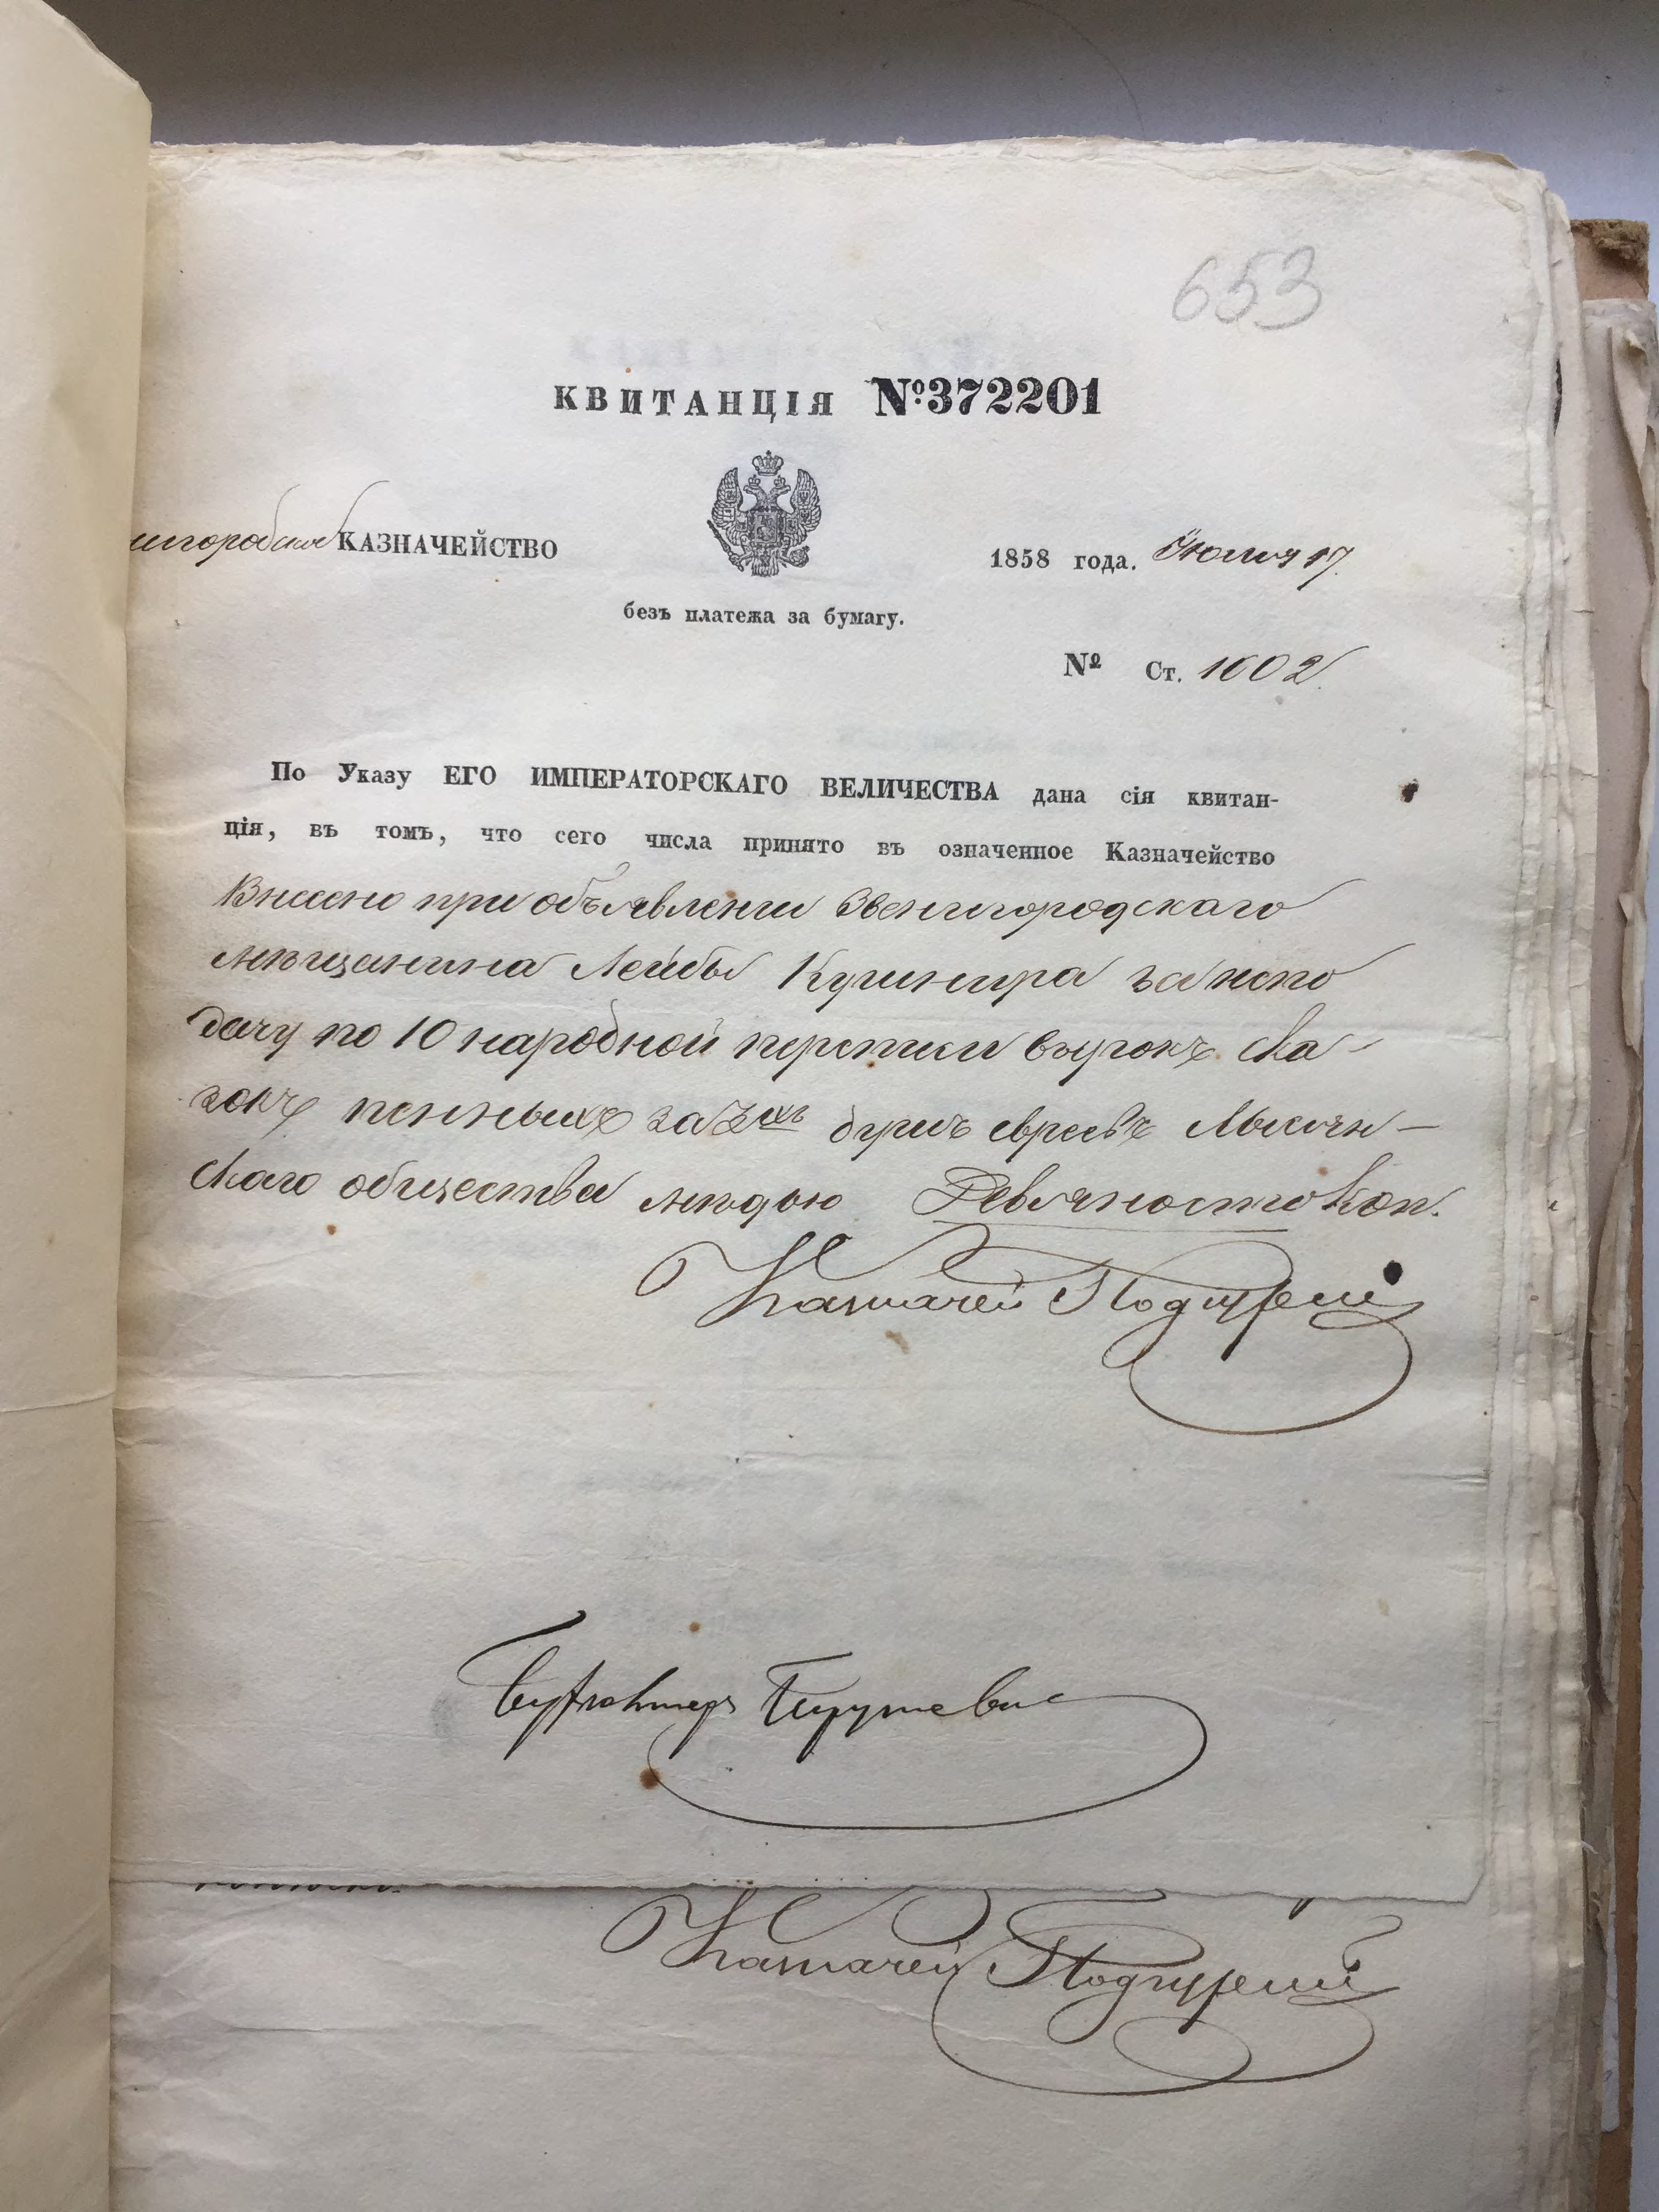 653
КВИТАНЦІЯ №372201
игородское КАЗНАЧЕЙСТВО
1858 года. Июля 17.
безъ платежа за бумагу.
№ Ст. 1602.
По Указу ЕГО ИМПЕРАТОРСКАГО ВЕЛИЧЕСТВА дана сія квитан-
ція, въ томъ, что сего числа принято въ означенное Казначейство
Внесено при объявленіи Звенигородскаго
мѣщанина Лейбы Кушнира за непо
дачу по 10 народной переписи въ срокъ ска-
зокъ пенныхъ за 3хъ душъ евреевъ
скаго общества мѣдью Девяносто коп.
Казначей
Бухгалтеръ
Казначей